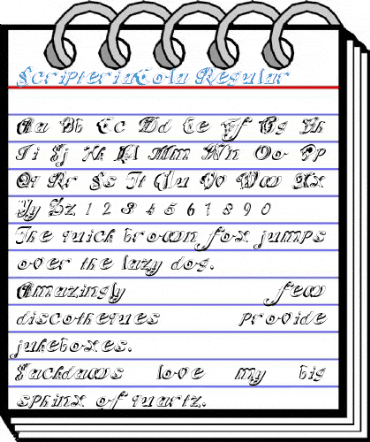 ScripteriaCola Regular
Aa Bb Cc Dd Ee Ff Gg Hh
Ii Jj Kk Ll Mm Nn Oo Pp
Qq Rr Ss Tt Uu Vv Ww Xx
Yy Zz 1 2 3 4 5 6 7 8 9 0
The quick brown fox jumps
over the lazy dog.
Amazingly few
discotheques provide
jukeboxes.
Jackdaws love my big
sphinx of quartz.